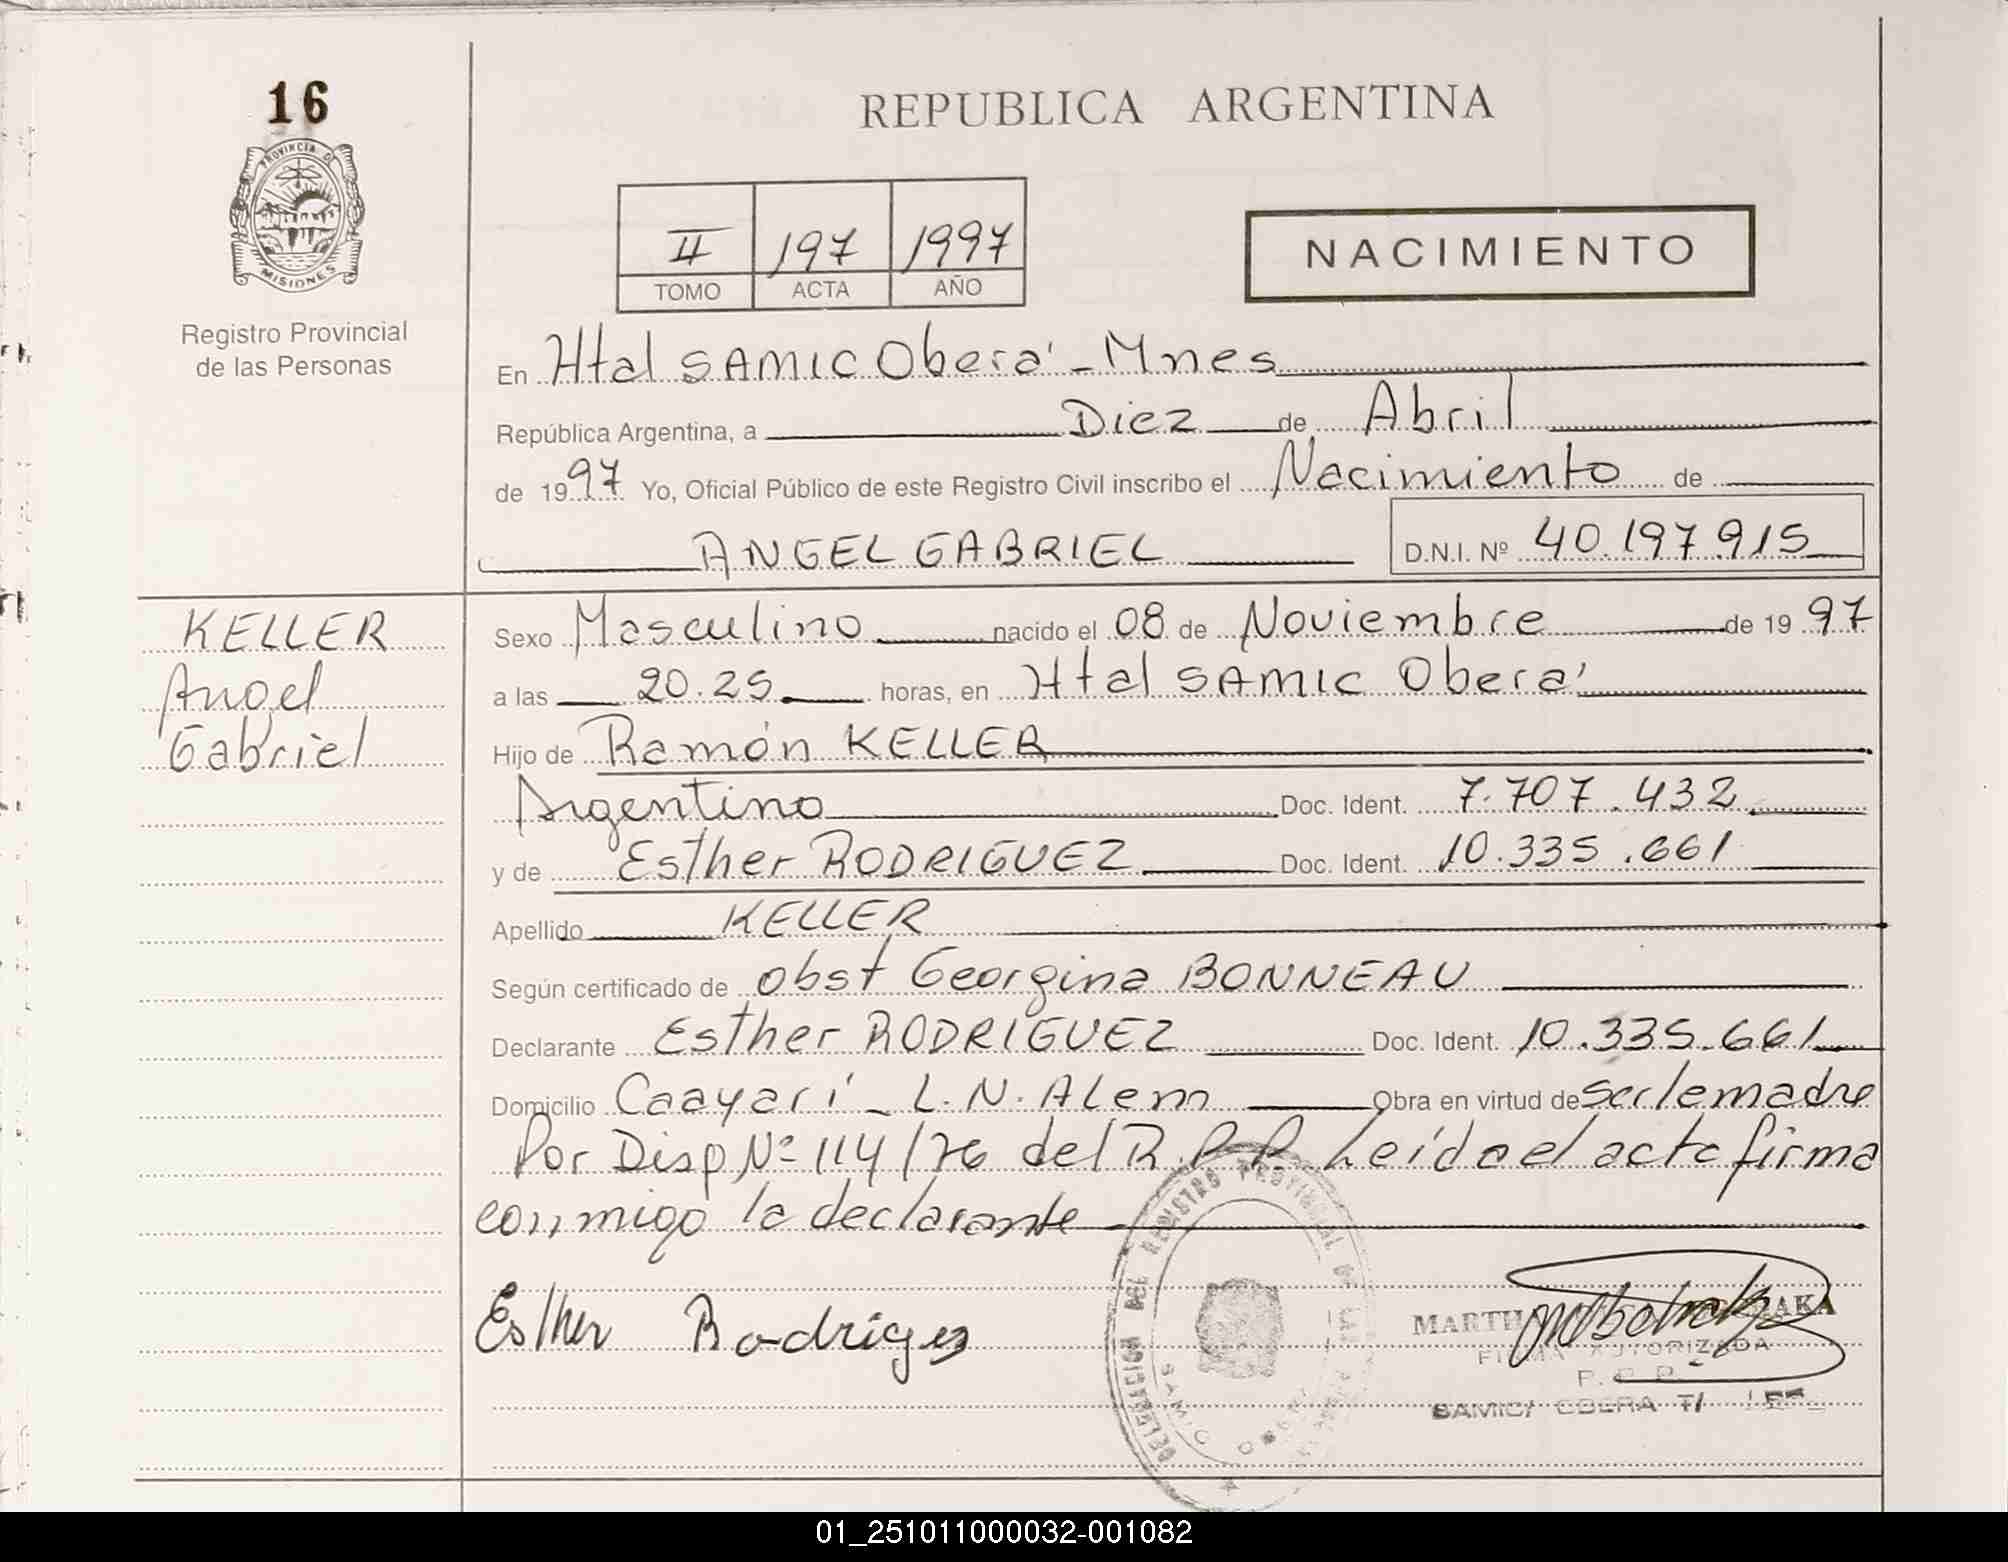 16
PROVINCIA DE
MISIONES
Registro Provincial
de las Personas
REPUBLICA ARGENTINA
II 197 1997
TOMO ACTA AÑO
NACIMIENTO
En Htal SAMIC Oberá - Mnes
República Argentina, a Diez de Abril
de 1997 Yo, Oficial Público de este Registro Civil inscribo el Nacimiento de
ANGEL GABRIEL D.N.I. Nº 40.197.915
KELLER
Angel
Gabriel
Sexo Masculino nacido el 08 de Noviembre de 1997
a las 20.25 horas, en Htal SAMIC Oberá
Hijo de Ramón KELLER
Argentino Doc. Ident. 7.707.432
y de Esther RODRIGUEZ Doc. Ident. 10.335.661
Apellido KELLER
Según certificado de Obst Georgina BONNEAU
Declarante Esther RODRIGUEZ Doc. Ident. 10.335.661
Domicilio Caayarí - L.N. Alem Obra en virtud de ser la madre
Por Disp Nº 114/76 del R.P.P. Leída el acta firma
conmigo la declarante
DELEGACION DEL REGISTRO PROVINCIAL DE
SAMIC
Esther Rodrigez
MARTH AKA
FIRMA AUTORIZADA
R.P.P.
SAMIC/ OBERA
01_251011000032-001082